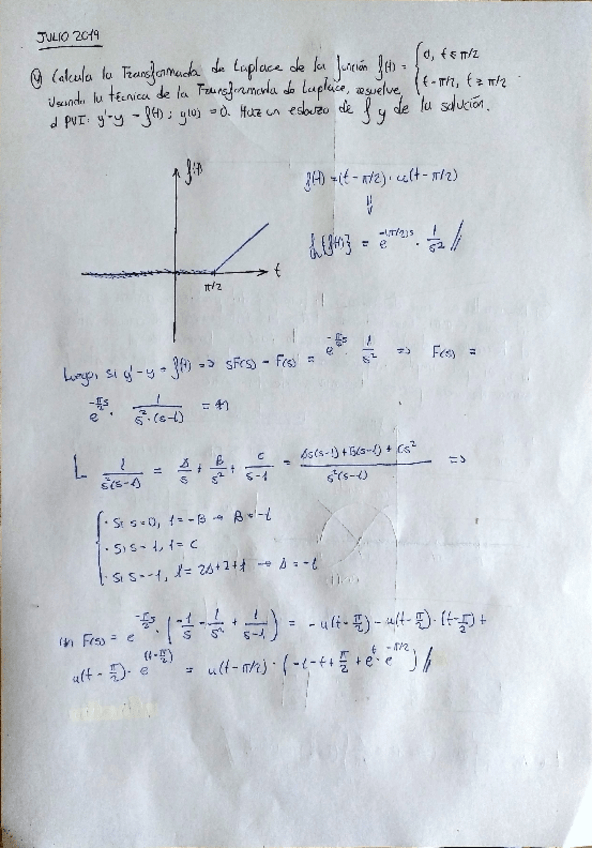 JULIO 2019
④ Calcula la Transformada de Laplace de la función f(t) = { 0, t ≤ π/2
t - π/2, t ≥ π/2
Usando la técnica de la Transformada de Laplace, resuelve
el PVI: y' - y = f(t); y(0) = 0. Haz un esbozo de f y de la solución.
f(t)
t
π/2
f(t) = (t - π/2) · u(t - π/2)
⇓
L{f(t)} = e^{-(π/2)s} · 1/s² //
Luego, si y' - y = f(t) => sF(s) - F(s) = e^{-π/2 s} · 1/s² => F(s) =
e^{-π/2 s} · 1/(s²·(s-1)) =
1/(s²(s-1)) = A/s + B/s² + C/(s-1) = (As(s-1) + B(s-1) + Cs²)/(s²(s-1)) =>
· Si s=0, 1 = -B → B = -1
· Si s=1, 1 = C
· Si s=-1, 1 = 2A+2+1 → A = -1
F(s) = e^{-π/2 s} · (-1/s - 1/s² + 1/(s-1)) = -u(t - π/2) - u(t - π/2) · (t - π/2) +
u(t - π/2) · e^{(t - π/2)} = u(t - π/2) · (-1 - t + π/2 + e^t · e^{-π/2}) //